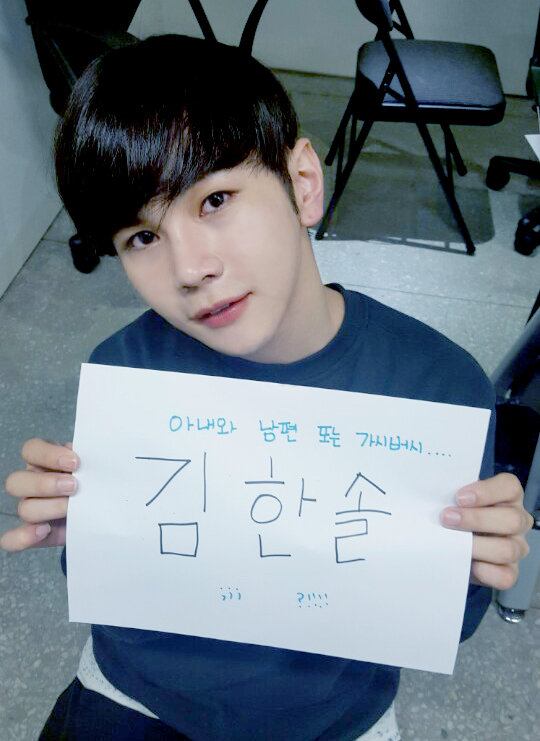 아내와 남편 또는 가시버시....
김한솔
;;; ?!!!!